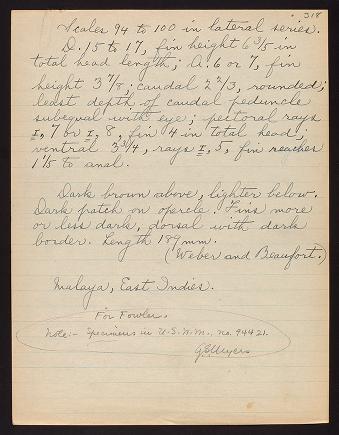 318
Scales 94 to 100 in lateral series.
D. 15 to 17, fin height 6 3/5 in
total head length; A. 6 or 7, fin
height 3 7/8; caudal 2 2/3, rounded;
least depth of caudal peduncle
subequal with eye; pectoral rays
I, 7 or I, 8, fin 4 in total head;
ventral 3 3/4, rays I, 5, fin reaches
1 1/5 to anal.
Dark brown above, lighter below.
Dark patch on opercle. Fins more
or less dark, dorsal with dark
border. Length 189 mm.
(Weber and Beaufort.)
Malaya, East Indies.
For Fowler.
Note:- Specimens in U.S.N.M., no. 94421.
G.S. Myers